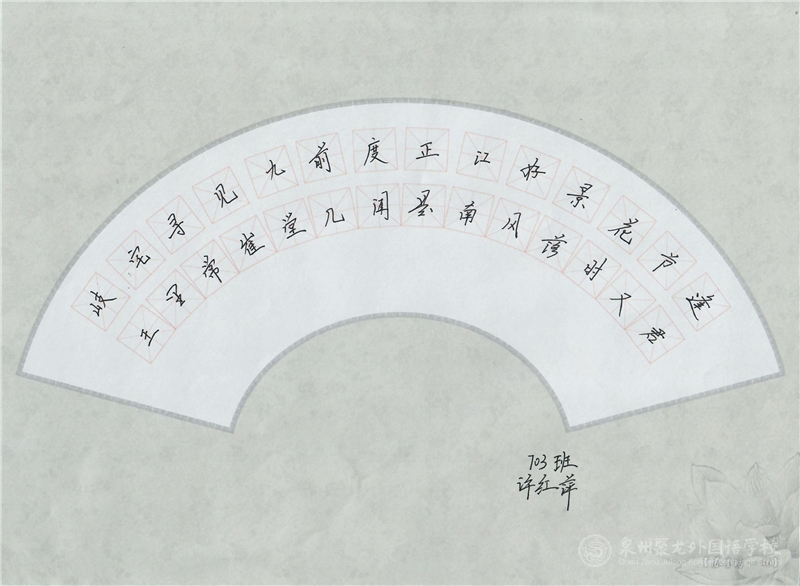 岐王
宅里
寻常
见崔
九堂
前几
度闻
正是
江南
好风
景落
花时
节又
逢君
703班
许红萍
泉州聚龙外国语学校